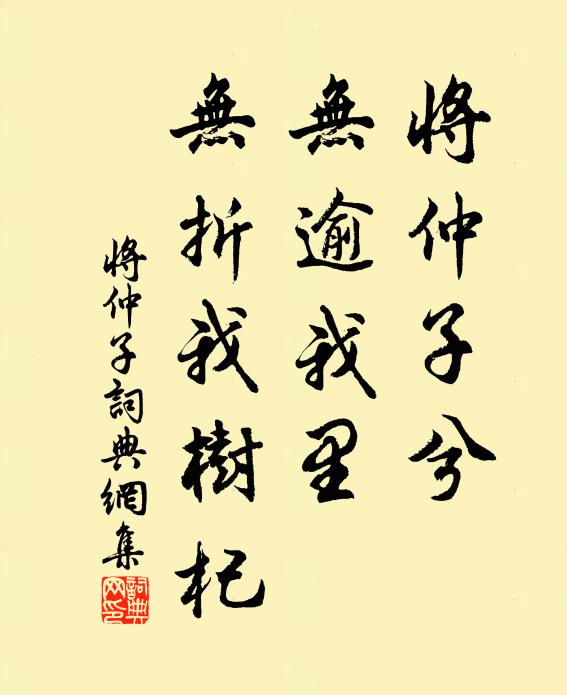 將仲子兮
無逾我里
無折我樹杞
將仲子詞典網集
詞典网印